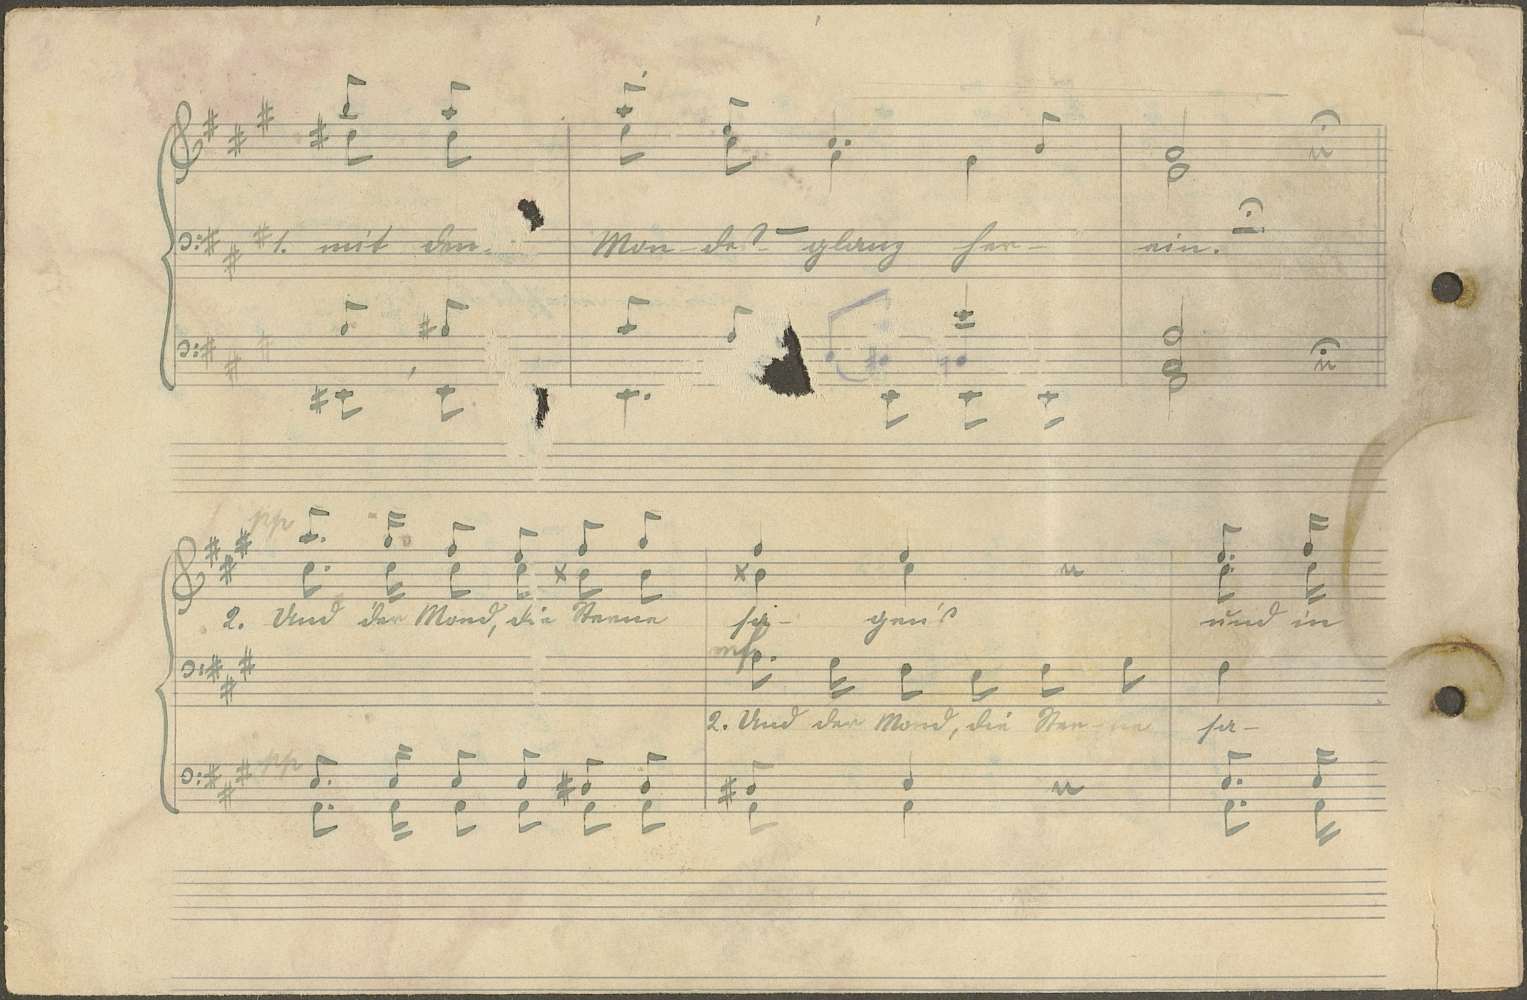 1. mit den Mon-des-glanz her-ein.
pp
2. Und der Mond, die Sterne sa-gen's und in
mf
2. Und der Mond, die Ster-ne sa-
pp